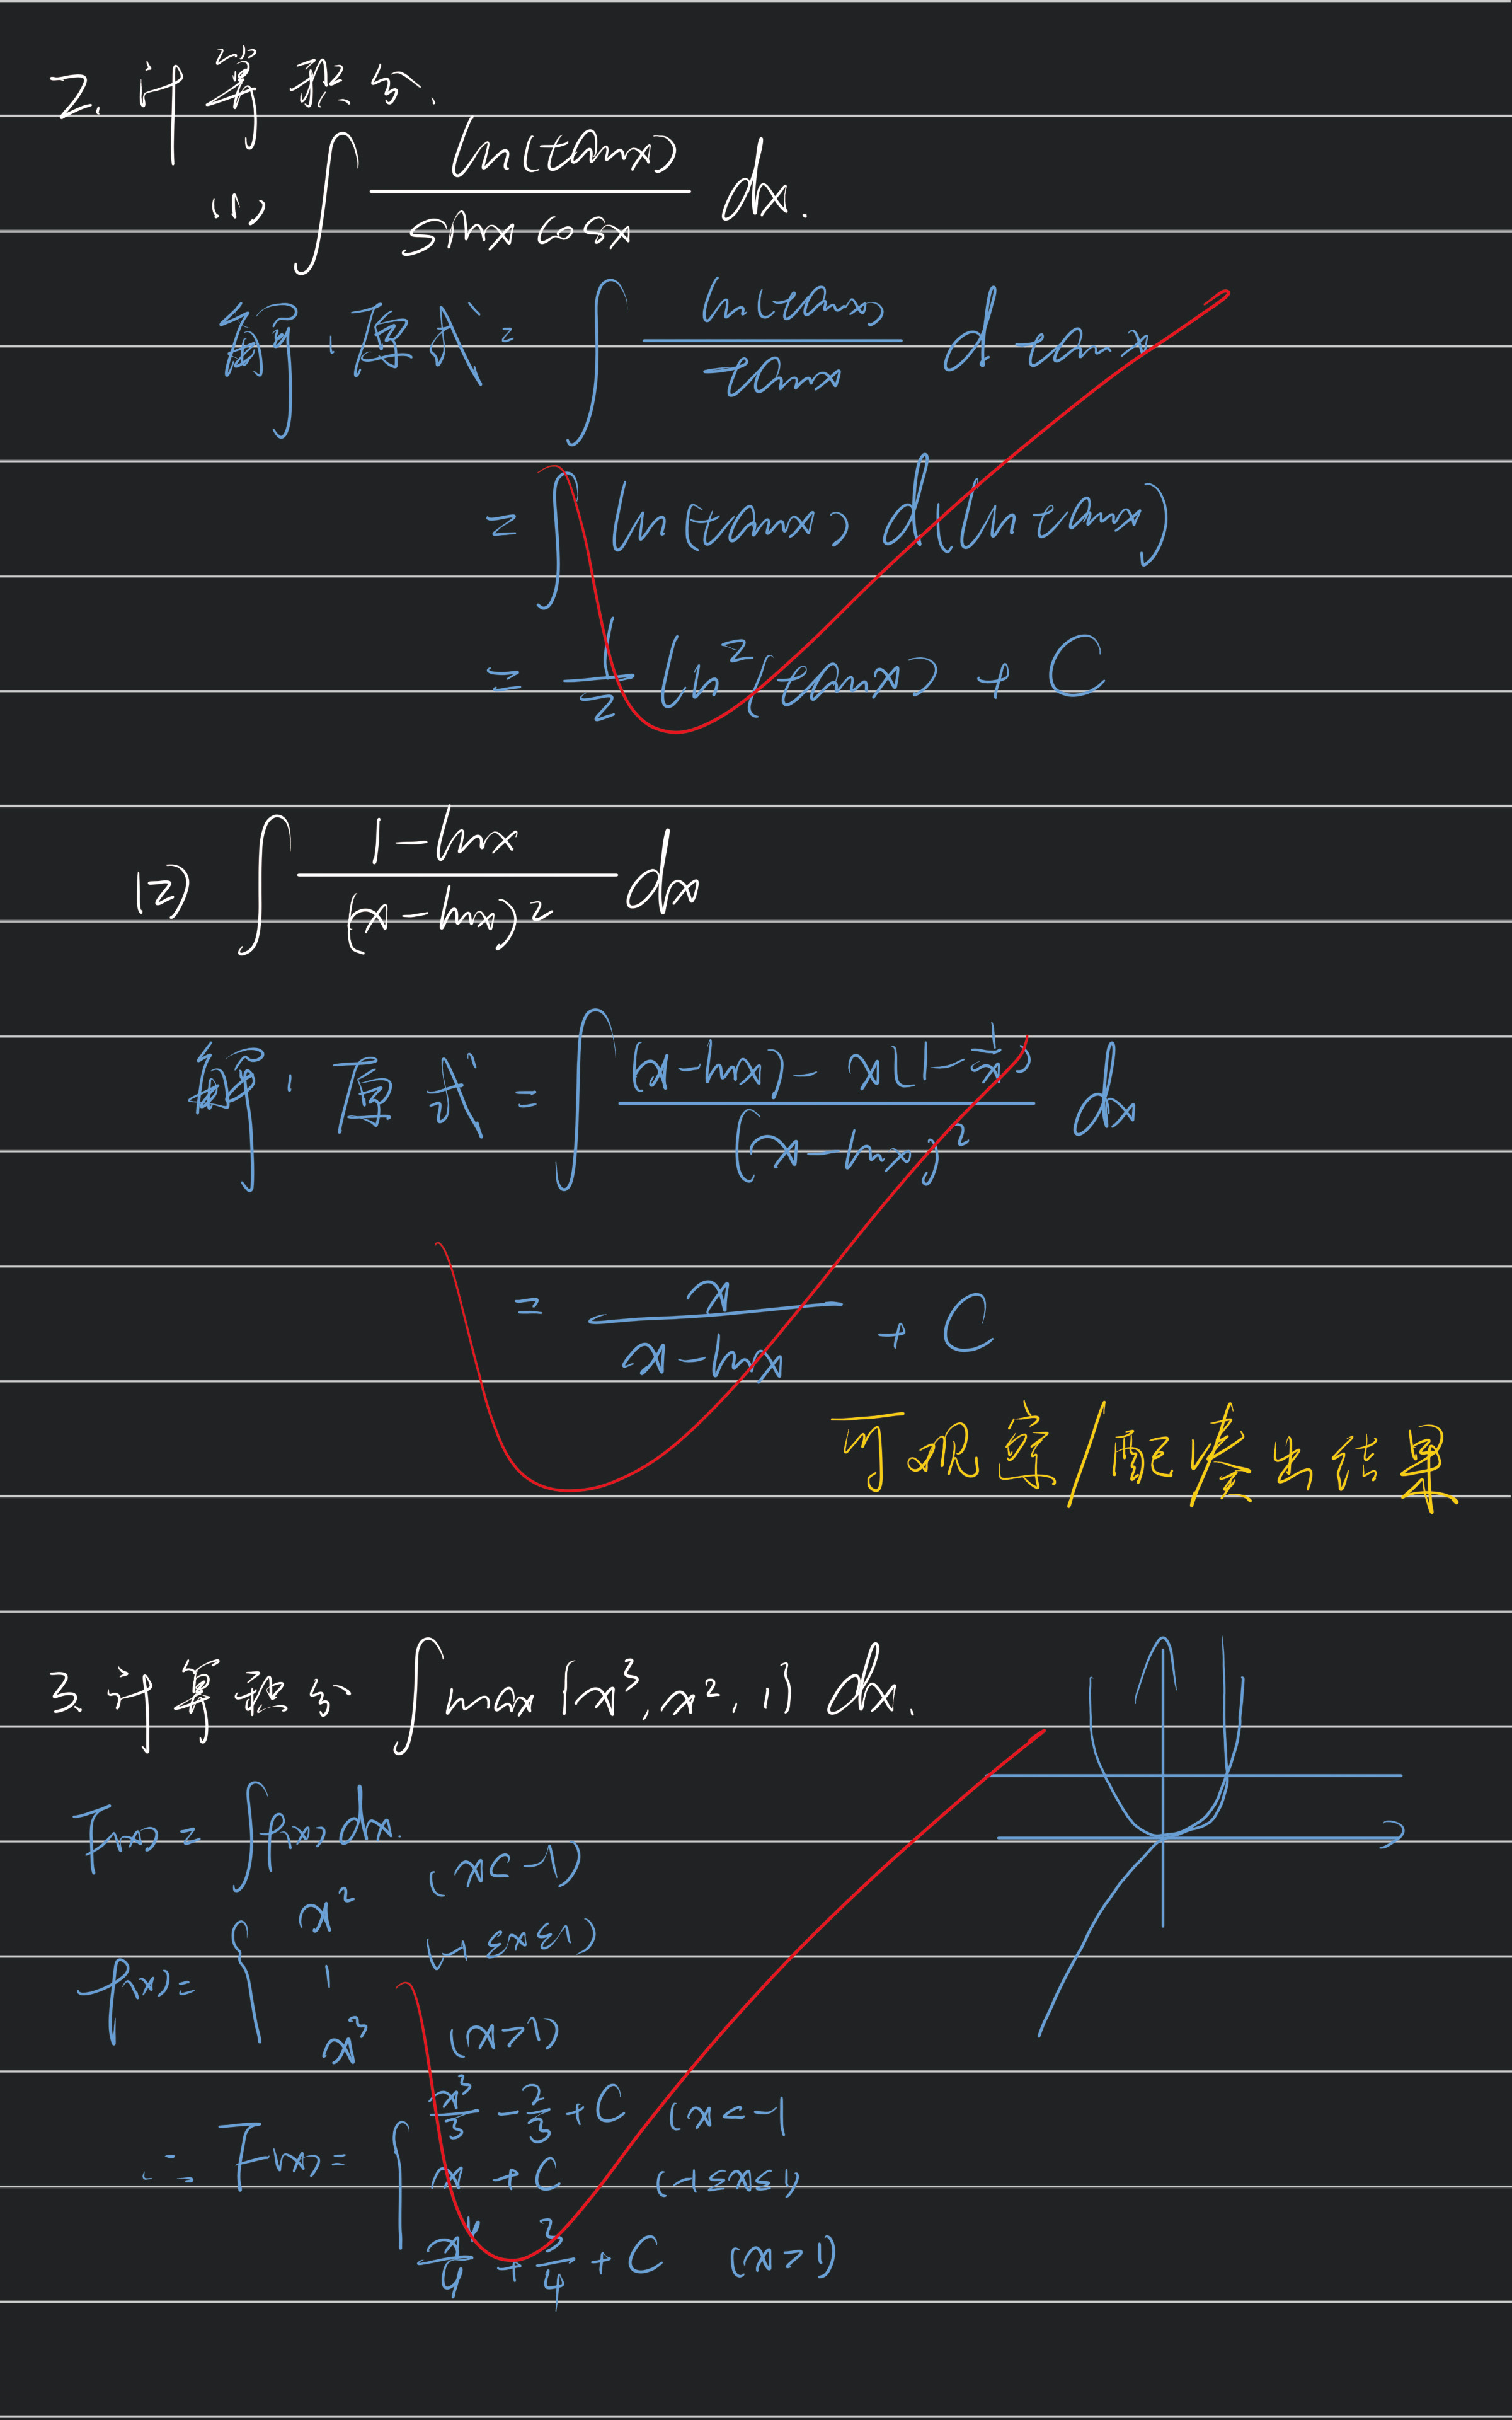 2. 计算积分.
(1) ∫ ln(tanx) / sinx cosx dx.
解: 原式 = ∫ ln(tanx) / tanx d tanx
= ∫ ln(tanx) d(ln tanx)
= 1/2 ln²(tanx) + C
(2) ∫ 1-lnx / (x-lnx)² dx
解: 原式 = ∫ (x-lnx) - x(1-1/x) / (x-lnx)² dx
= x / x-lnx + C
可观察/配凑出结果
3. 计算积分 ∫ max{x³, x², 1} dx.
F(x) = ∫ f(x) dx.
f(x) = { x² (x<-1)
1 (-1≤x≤1)
x³ (x>1)
∴ F(x) = { x³/3 - 2/3 + C (x<-1
x + C (-1≤x≤1)
x⁴/4 + 3/4 + C (x>1)